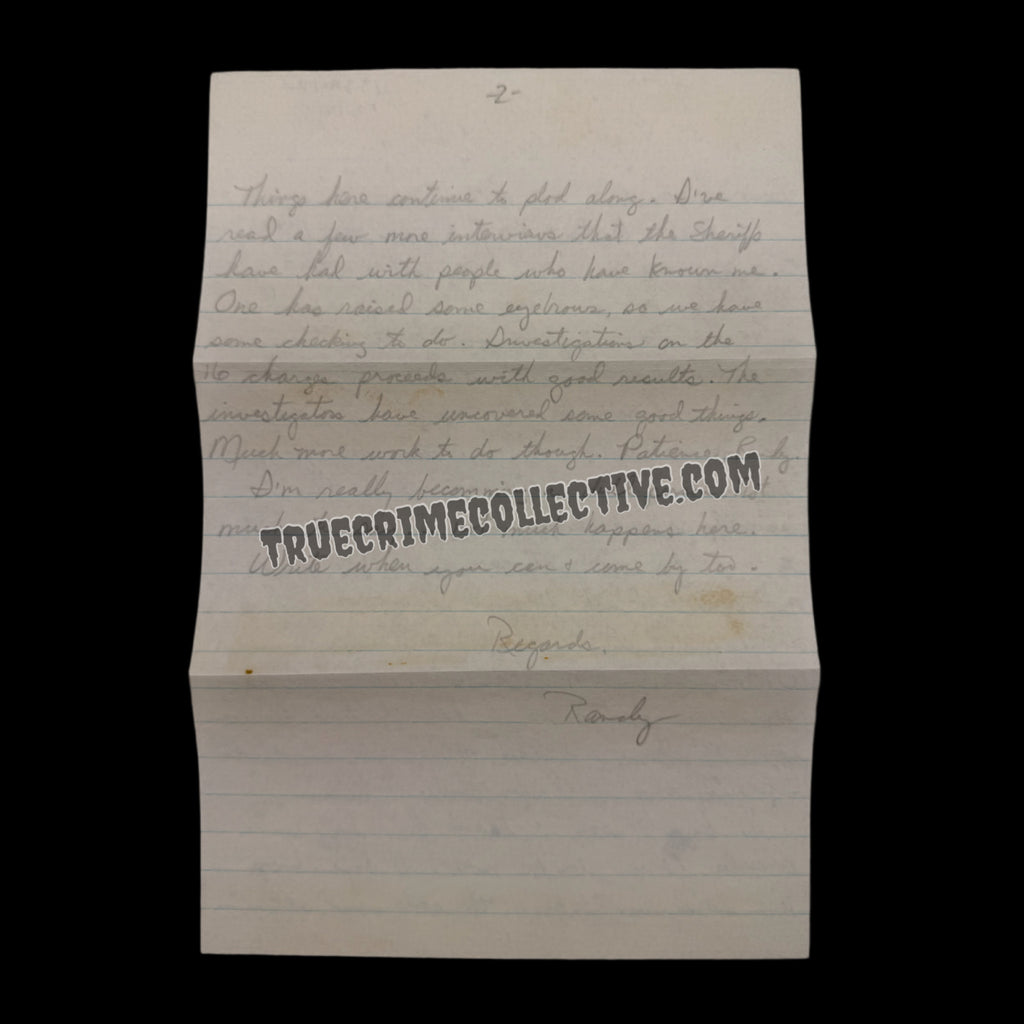 -2-
Things here continue to plod along. I've
read a few more interviews that the Sheriffs
have had with people who have known me.
One has raised some eyebrows, so we have
some checking to do. Investigations on the
16 charges proceeds with good results. The
investigators have uncovered some good things.
Much more work to do though. Patience,
I'm really
TRUECRIMECOLLECTIVE.COM
much happens here.
Write when you can & come by too.
Regards,
Randy